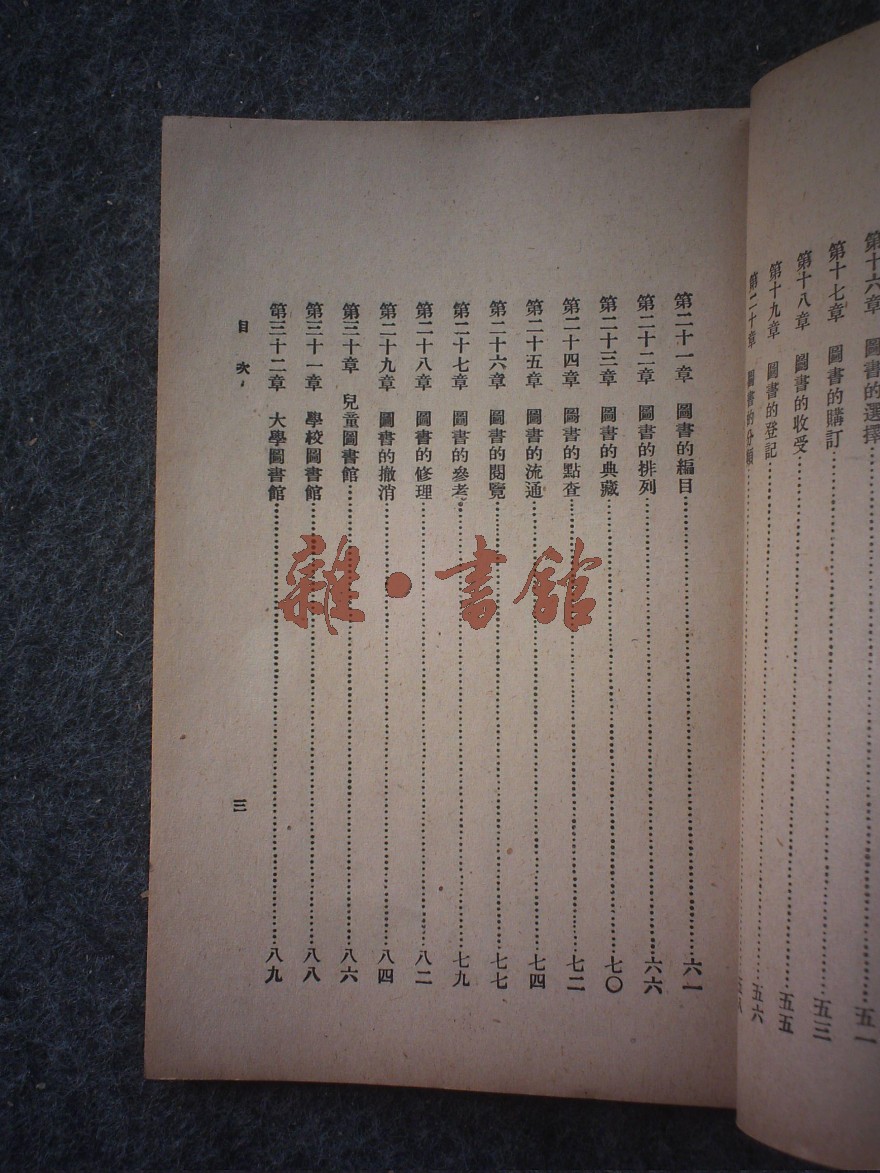 第十六章 圖書的選擇……五一
第十七章 圖書的購訂……五三
第十八章 圖書的收受……五五
第十九章 圖書的登記……五六
第二十章 圖書的分類……五八
第二十一章 圖書的編目……六一
第二十二章 圖書的排列……六六
第二十三章 圖書的典藏……七〇
第二十四章 圖書的點查……七二
第二十五章 圖書的流通……七四
第二十六章 圖書的閱覽……七七
第二十七章 圖書的參考……七九
第二十八章 圖書的修理……八二
第二十九章 圖書的撤消……八四
第三十章 兒童圖書館……八六
第三十一章 學校圖書館……八八
第三十二章 大學圖書館……八九
目次
三
雜·書館